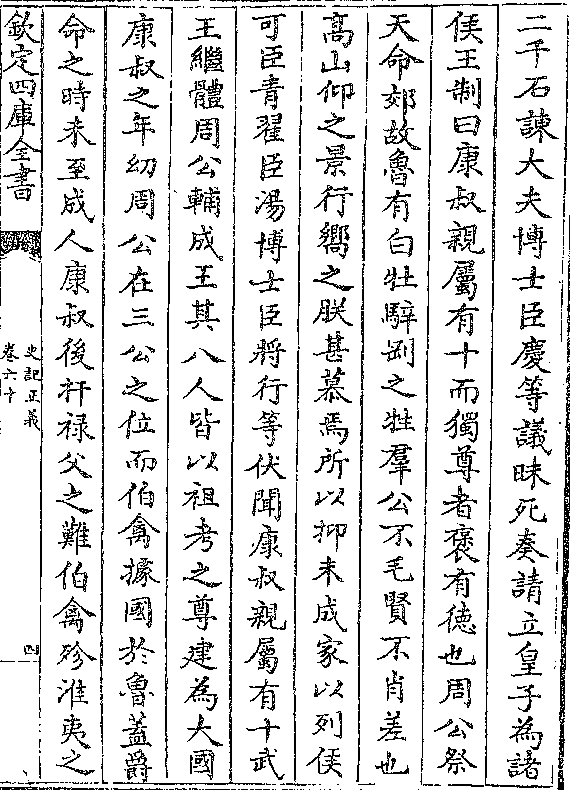 二千石諫大夫博士臣慶等議昧死奏請立皇子為諸
侯王制曰康叔親屬有十而獨尊者褒有徳也周公祭
天命郊故魯有白牡騂剛之牲羣公不毛賢不肖差也
高山仰之景行嚮之朕甚慕焉所以抑未成家以列侯
可臣青翟臣湯博士臣將行等伏聞康叔親屬有十武
王繼體周公輔成王其八人皆以祖考之尊建為大國
康叔之年幼周公在三公之位而伯禽據國於魯蓋爵
命之時未至成人康叔後扞禄父之難伯禽殄淮夷之
欽定四庫全書
史記正義
卷六十
四